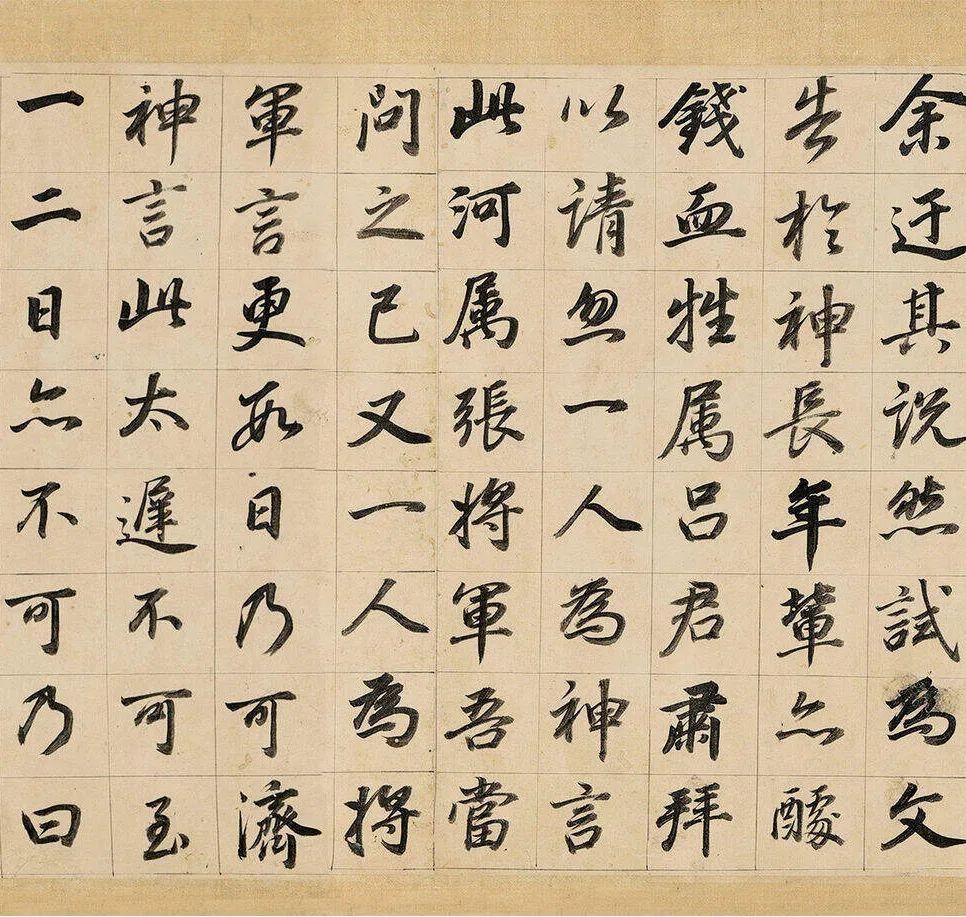 余迂其説然試為文
告於神長年輩亦醵
錢血牲属吕君肅拜
以請忽一人為神言
此河属張將軍吾當
問之已又一人為將
軍言更數日乃可濟
神言此太遲不可至
一二日亦不可乃曰